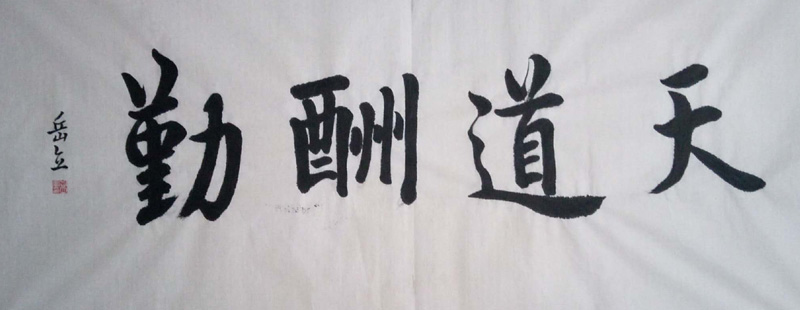 天道酬勤
岳立